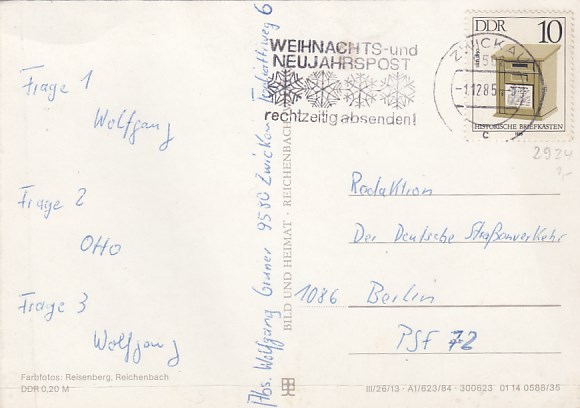 Frage 1
Wolfgang
Frage 2
Otto
Frage 3
Wolfgang
Farbfotos: Reisenberg, Reichenbach
DDR 0,20 M
Abs. Wolfgang Gruner 9580 Zwickau 6
BILD UND HEIMAT · REICHENBACH
WEIHNACHTS-und
NEUJAHRSPOST
rechtzeitig absenden!
ZWICKAU
-1.12.85
c
DDR 10
HISTORISCHE BRIEFKÄSTEN
2924
Redaktion
Der Deutsche Straßenverkehr
1086 Berlin
PSF 72
III/26/13 · A1/623/84 · 300623 01 14 0588/35